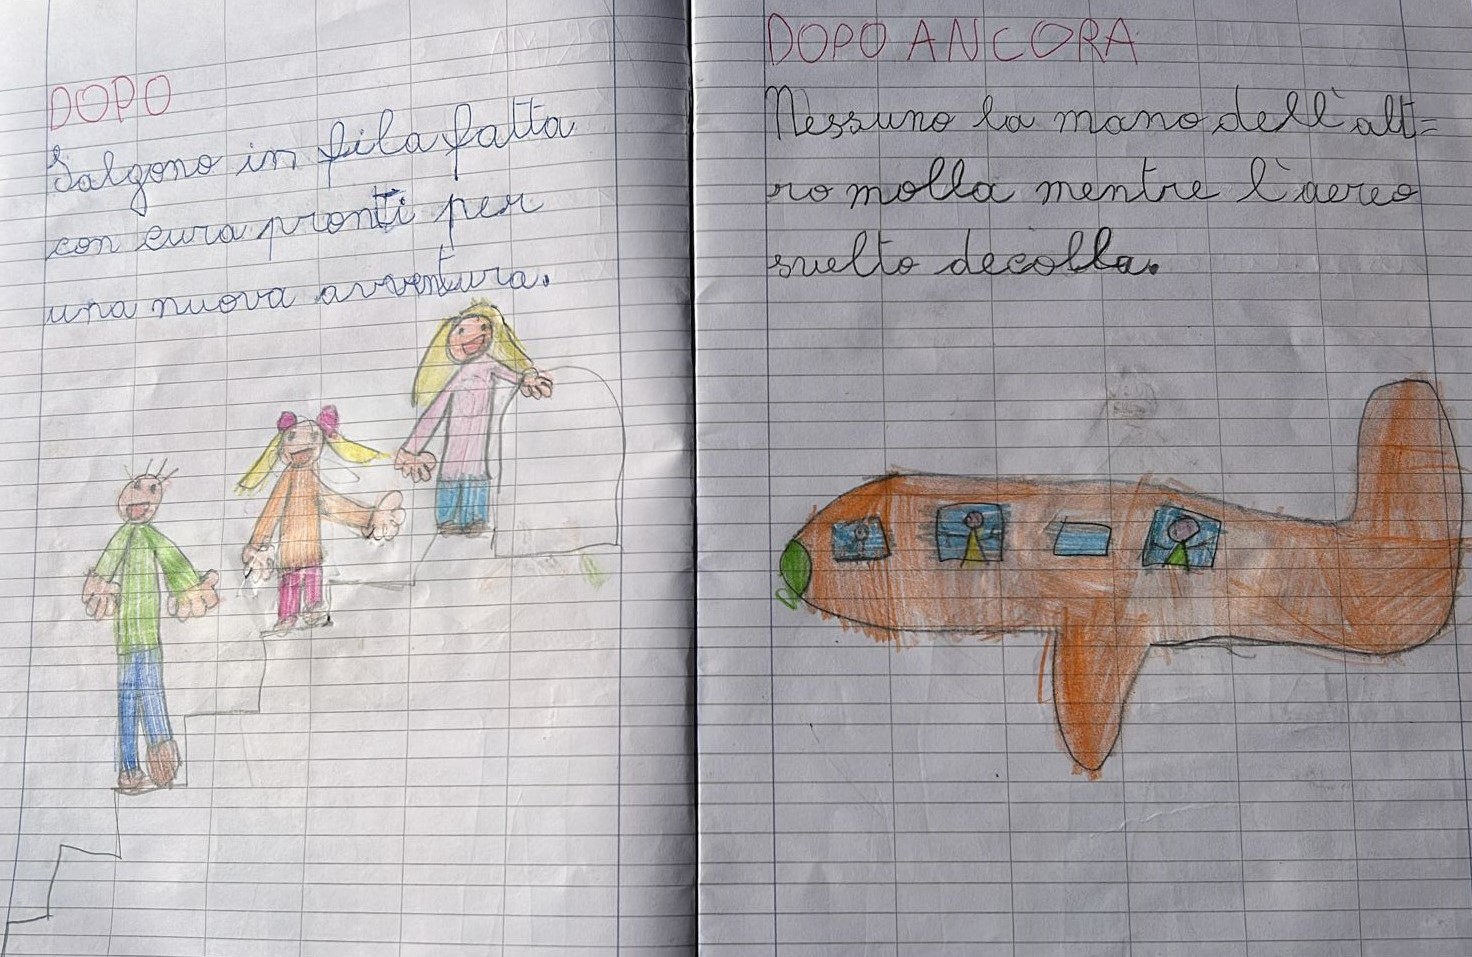 DOPO
Salgono in fila fatta
con cura pronti per
una nuova avventura.
DOPO ANCORA
Nessuno la mano dell'alt=
ro molla mentre l'aereo
svelto decolla.